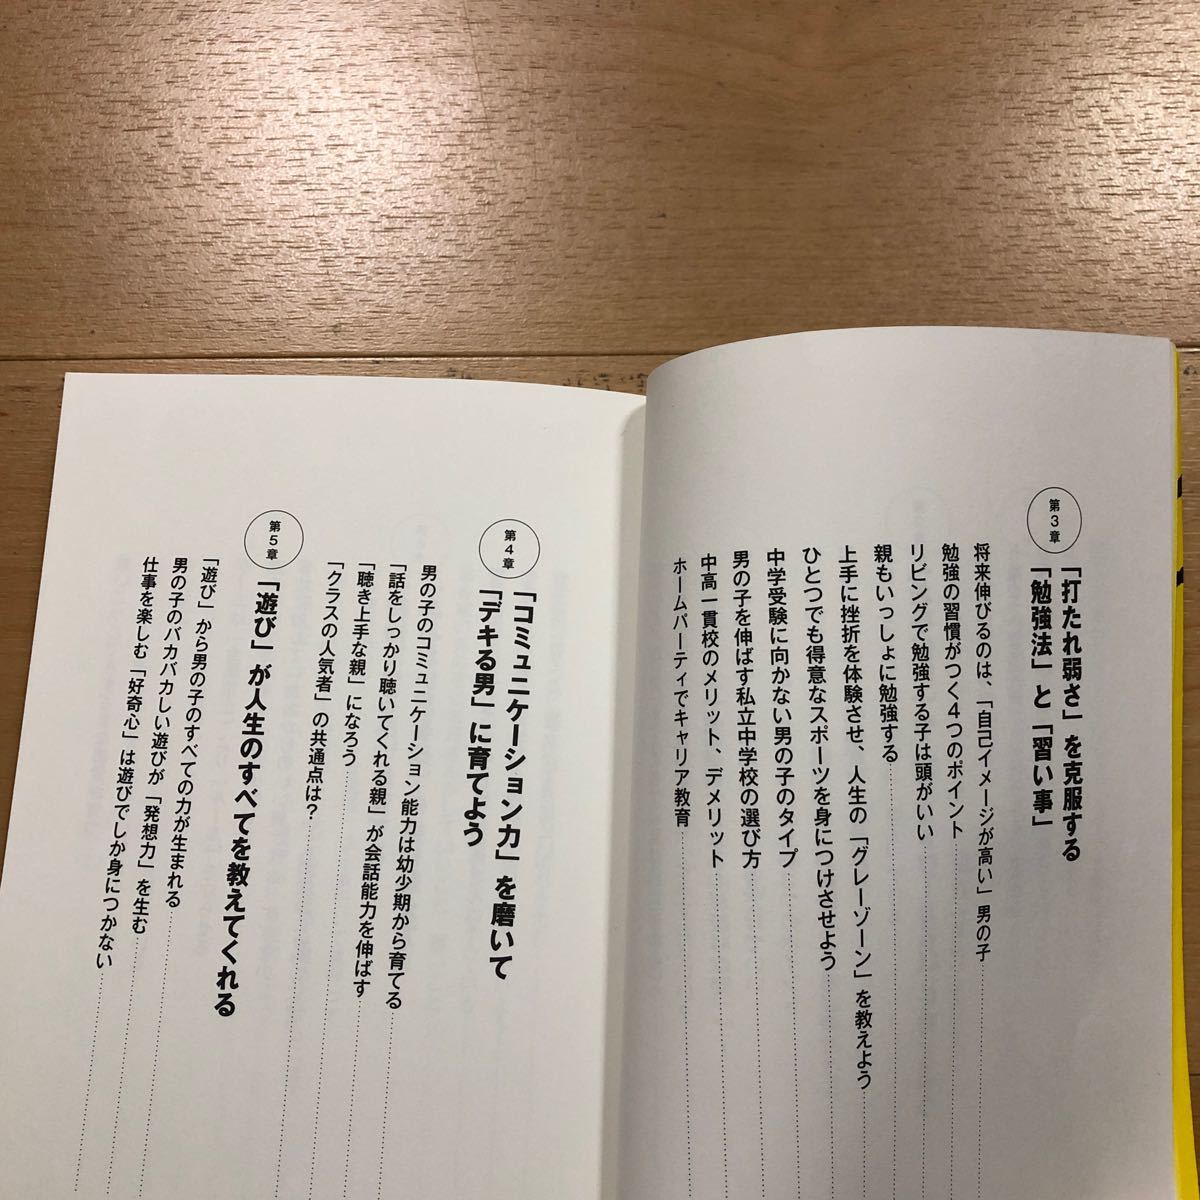 第3章
「打たれ弱さ」を克服する
「勉強法」と「習い事」
将来伸びるのは、「自己イメージが高い」男の子
勉強の習慣がつく4つのポイント
リビングで勉強する子は頭がいい
親もいっしょに勉強する
上手に挫折を体験させ、人生の「グレーゾーン」を教えよう
ひとつでも得意なスポーツを身につけさせよう
中学受験に向かない男の子のタイプ
男の子を伸ばす私立中学校の選び方
中高一貫校のメリット、デメリット
ホームパーティでキャリア教育
第4章
「コミュニケーション力」を磨いて
「デキる男」に育てよう
男の子のコミュニケーション能力は幼少期から育てる
「話をしっかり聴いてくれる親」が会話能力を伸ばす
「聴き上手な親」になろう
「クラスの人気者」の共通点は?
第5章
「遊び」が人生のすべてを教えてくれる
「遊び」から男の子のすべての力が生まれる
男の子のバカバカしい遊びが「発想力」を生む
仕事を楽しむ「好奇心」は遊びでしか身につかない